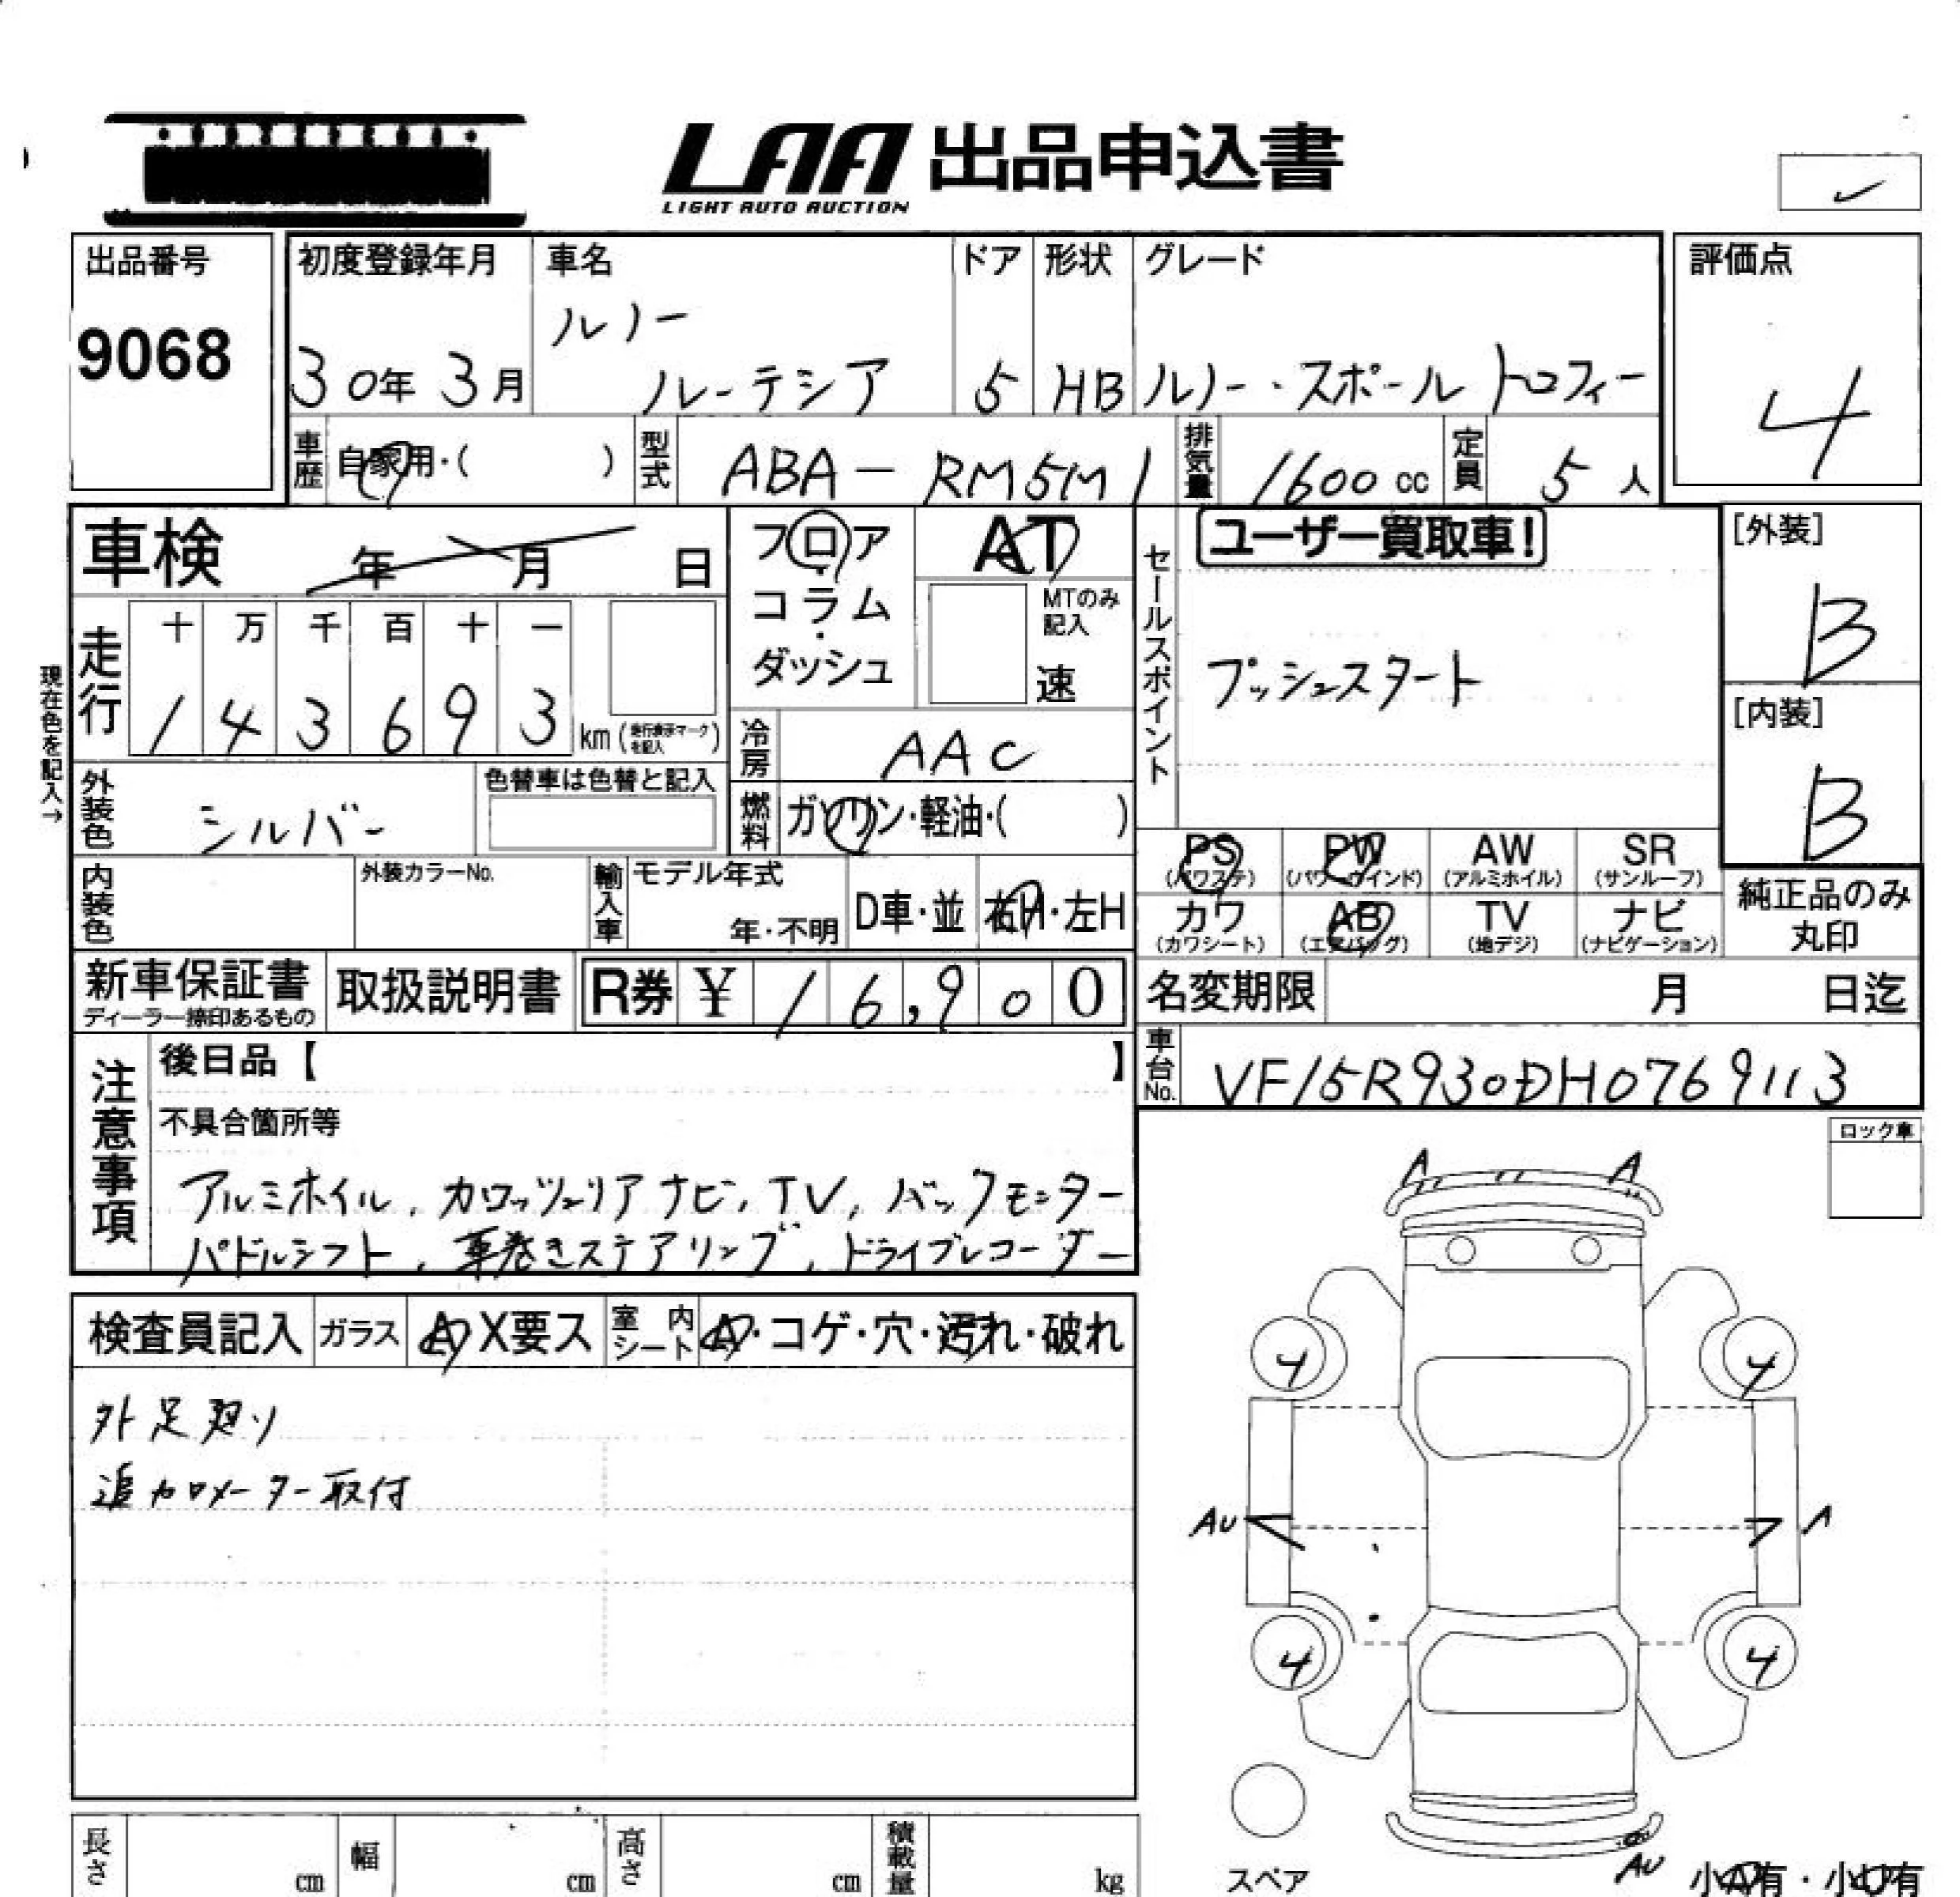 LAA 出品申込書
LIGHT AUTO AUCTION
出品番号
9068
初度登録年月
30年 3月
車名
ルノー
ルーテシア
ドア
5
形状
HB
グレード
ルノー・スポール トロフィー
評価点
4
車歴
自家用・( )
型式
ABA-RM5M1
排気量
1600 cc
定員
5 人
車検 年 月 日
フロア
・
コラム
・
ダッシュ
AT
MTのみ
記入
速
セールスポイント
ユーザー買取車!
プッシュスタート
[外装]
B
[内装]
B
現在色を記入→
走行
十 万 千 百 十 一
1 4 3 6 9 3 km (走行表示マークを記入)
冷房
AAC
外装色
シルバー
色替車は色替と記入
燃料
ガソリン・軽油・( )
内装色
外装カラーNo.
輸入車
モデル年式
年・不明
D車・並
右H・左H
PS
(パワステ)
PW
(パワーウインド)
AW
(アルミホイル)
SR
(サンルーフ)
カワ
(カワシート)
AB
(エアバッグ)
TV
(地デジ)
ナビ
(ナビゲーション)
純正品のみ
丸印
新車保証書
ディーラー捺印あるもの
取扱説明書
R券 ¥ 16,900
名変期限 月 日迄
車台No.
VF15R930DH0769113
注意事項
後日品【 】
不具合箇所等
アルミホイル, カロッツェリアナビ, TV, バックモニター
パドルシフト, 革巻きステアリング, ドライブレコーダー
ロック車
検査員記入
ガラス
A X要ス
室内シート
A・コゲ・穴・汚れ・破れ
外足廻り
追加メーター取付
A
A
4
4
AU
A
4
4
スペア
AU
小A有・小U有
長さ
cm
幅
cm
高さ
cm
積載量
kg